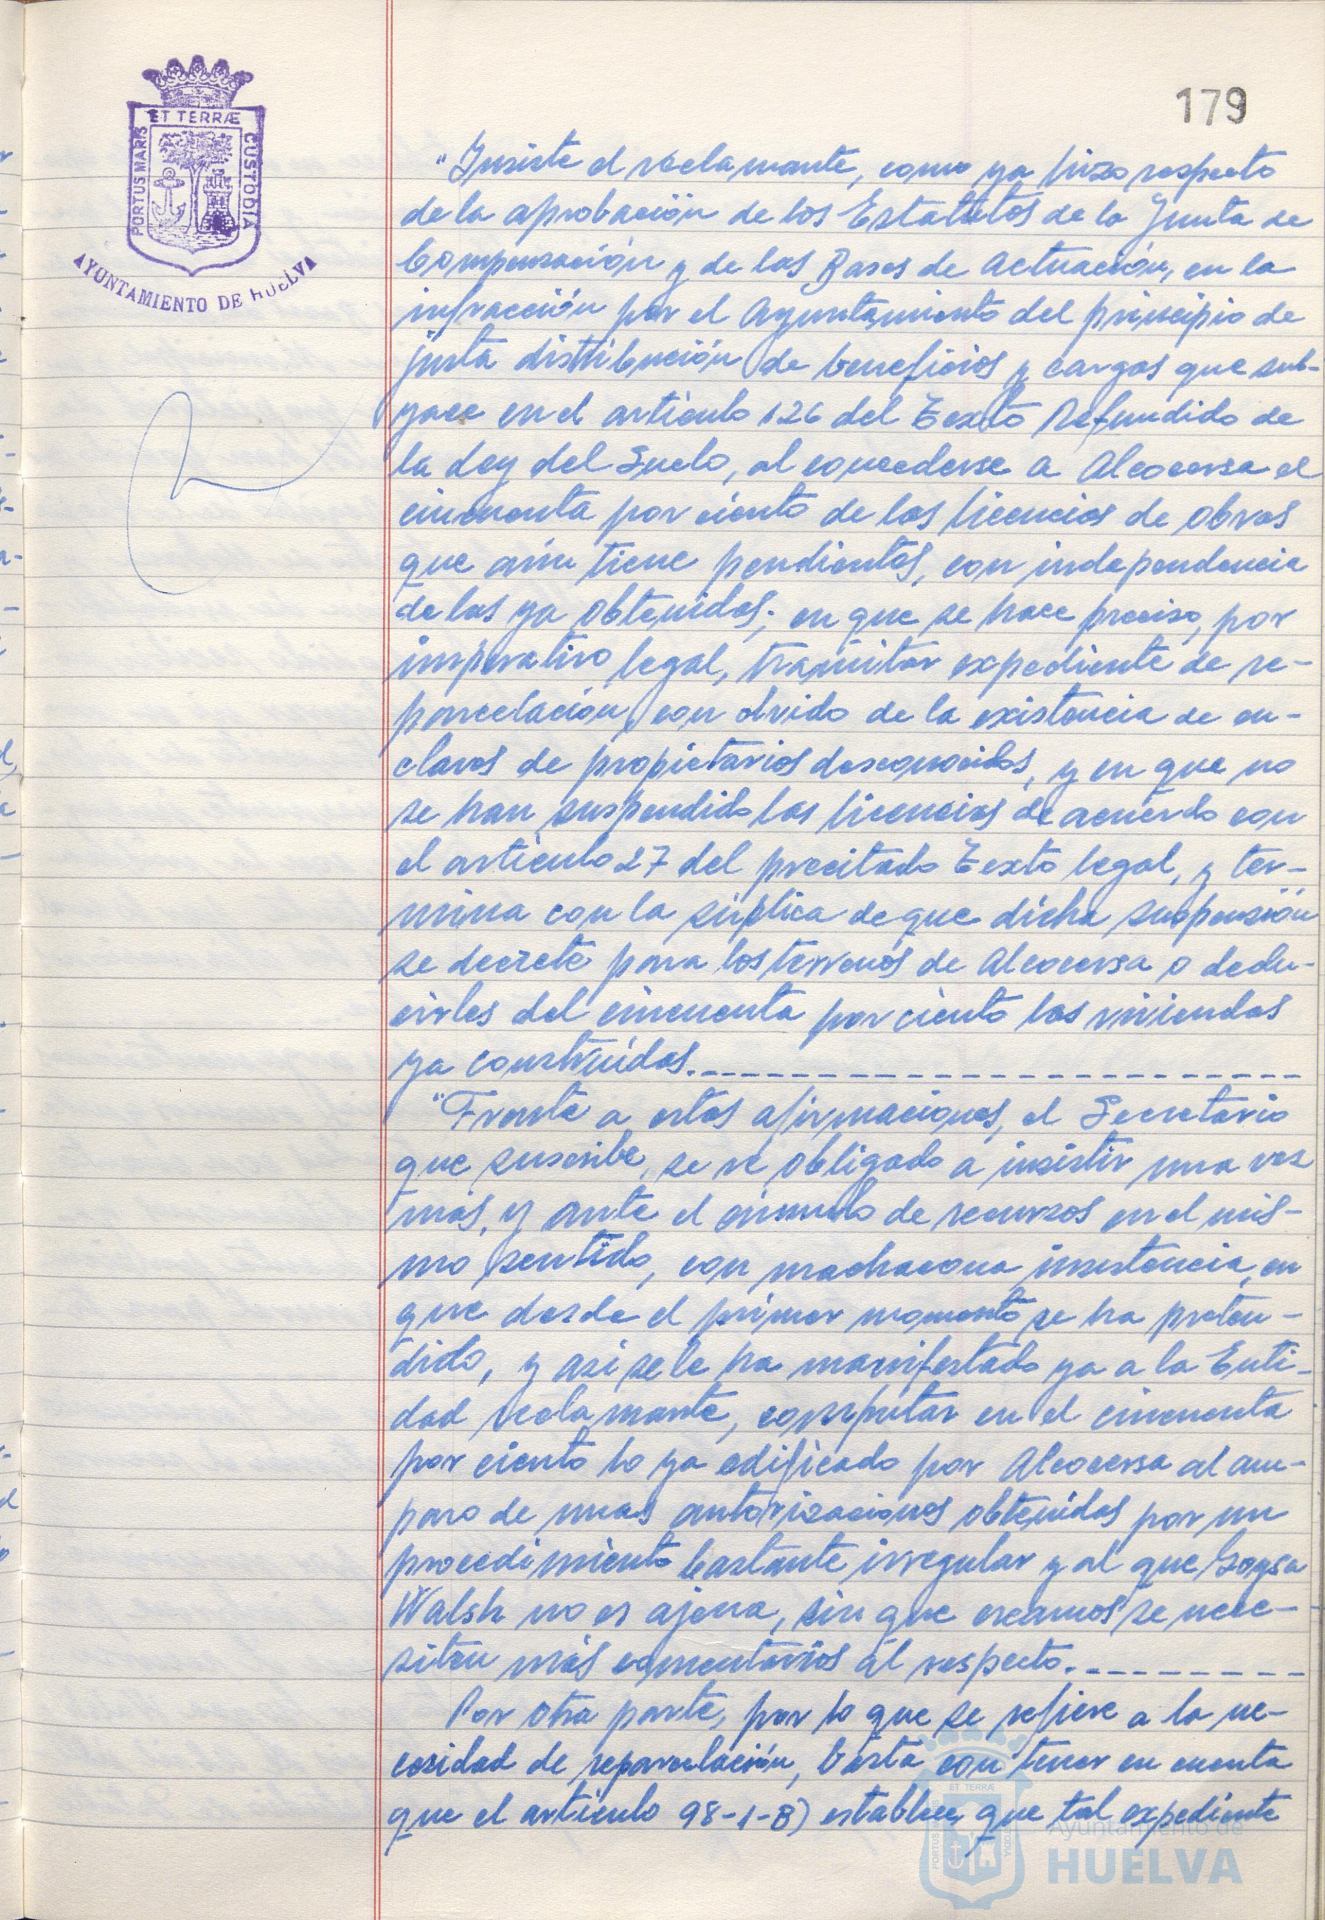 179
ET TERRÆ
PORTUS MARIS
CUSTODIA
AYUNTAMIENTO DE HUELVA
"Insiste el reclamante, como ya hizo respecto
de la aprobación de los Estatutos de la Junta de
Compensación y de las Bases de Actuación, en la
infracción por el Ayuntamiento del principio de
justa distribución de beneficios y cargas que sub-
yace en el artículo 126 del Texto Refundido de
la Ley del Suelo, al concederse a Alcocersa el
cincuenta por ciento de las licencias de obras
que aún tiene pendientes, con independencia
de las ya obtenidas; en que se hace preciso, por
imperativo legal, tramitar expediente de re-
parcelación, con olvido de la existencia de en-
claves de propietarios desconocidos, y en que no
se han suspendido las licencias de acuerdo con
el artículo 27 del precitado Texto legal, y ter-
mina con la súplica de que dicha suspensión
se decrete para los terrenos de Alcocersa o dedu-
cirles del cincuenta por ciento las viviendas
ya construídas.
"Frente a estas afirmaciones, el Secretario
que suscribe, se ve obligado a insistir una vez
más, y ante el cúmulo de recursos en el mis-
mo sentido, con machacona insistencia, en
que desde el primer momento se ha preten-
dido, y así se le ha manifestado ya a la Enti-
dad reclamante, computar en el cincuenta
por ciento lo ya edificado por Alcocersa al am-
paro de unas autorizaciones obtenidas por un
procedimiento bastante irregular y al que
Walsh no es ajena, sin que creamos se nece-
siten más comentarios al respecto.
Por otra parte, por lo que se refiere a la ne-
cesidad de reparcelación, basta con tener en cuenta
que el artículo 98-1-B) establece que tal expediente
ET TERRÆ
PORTUS
CUSTODIA
Ayuntamiento de
HUELVA